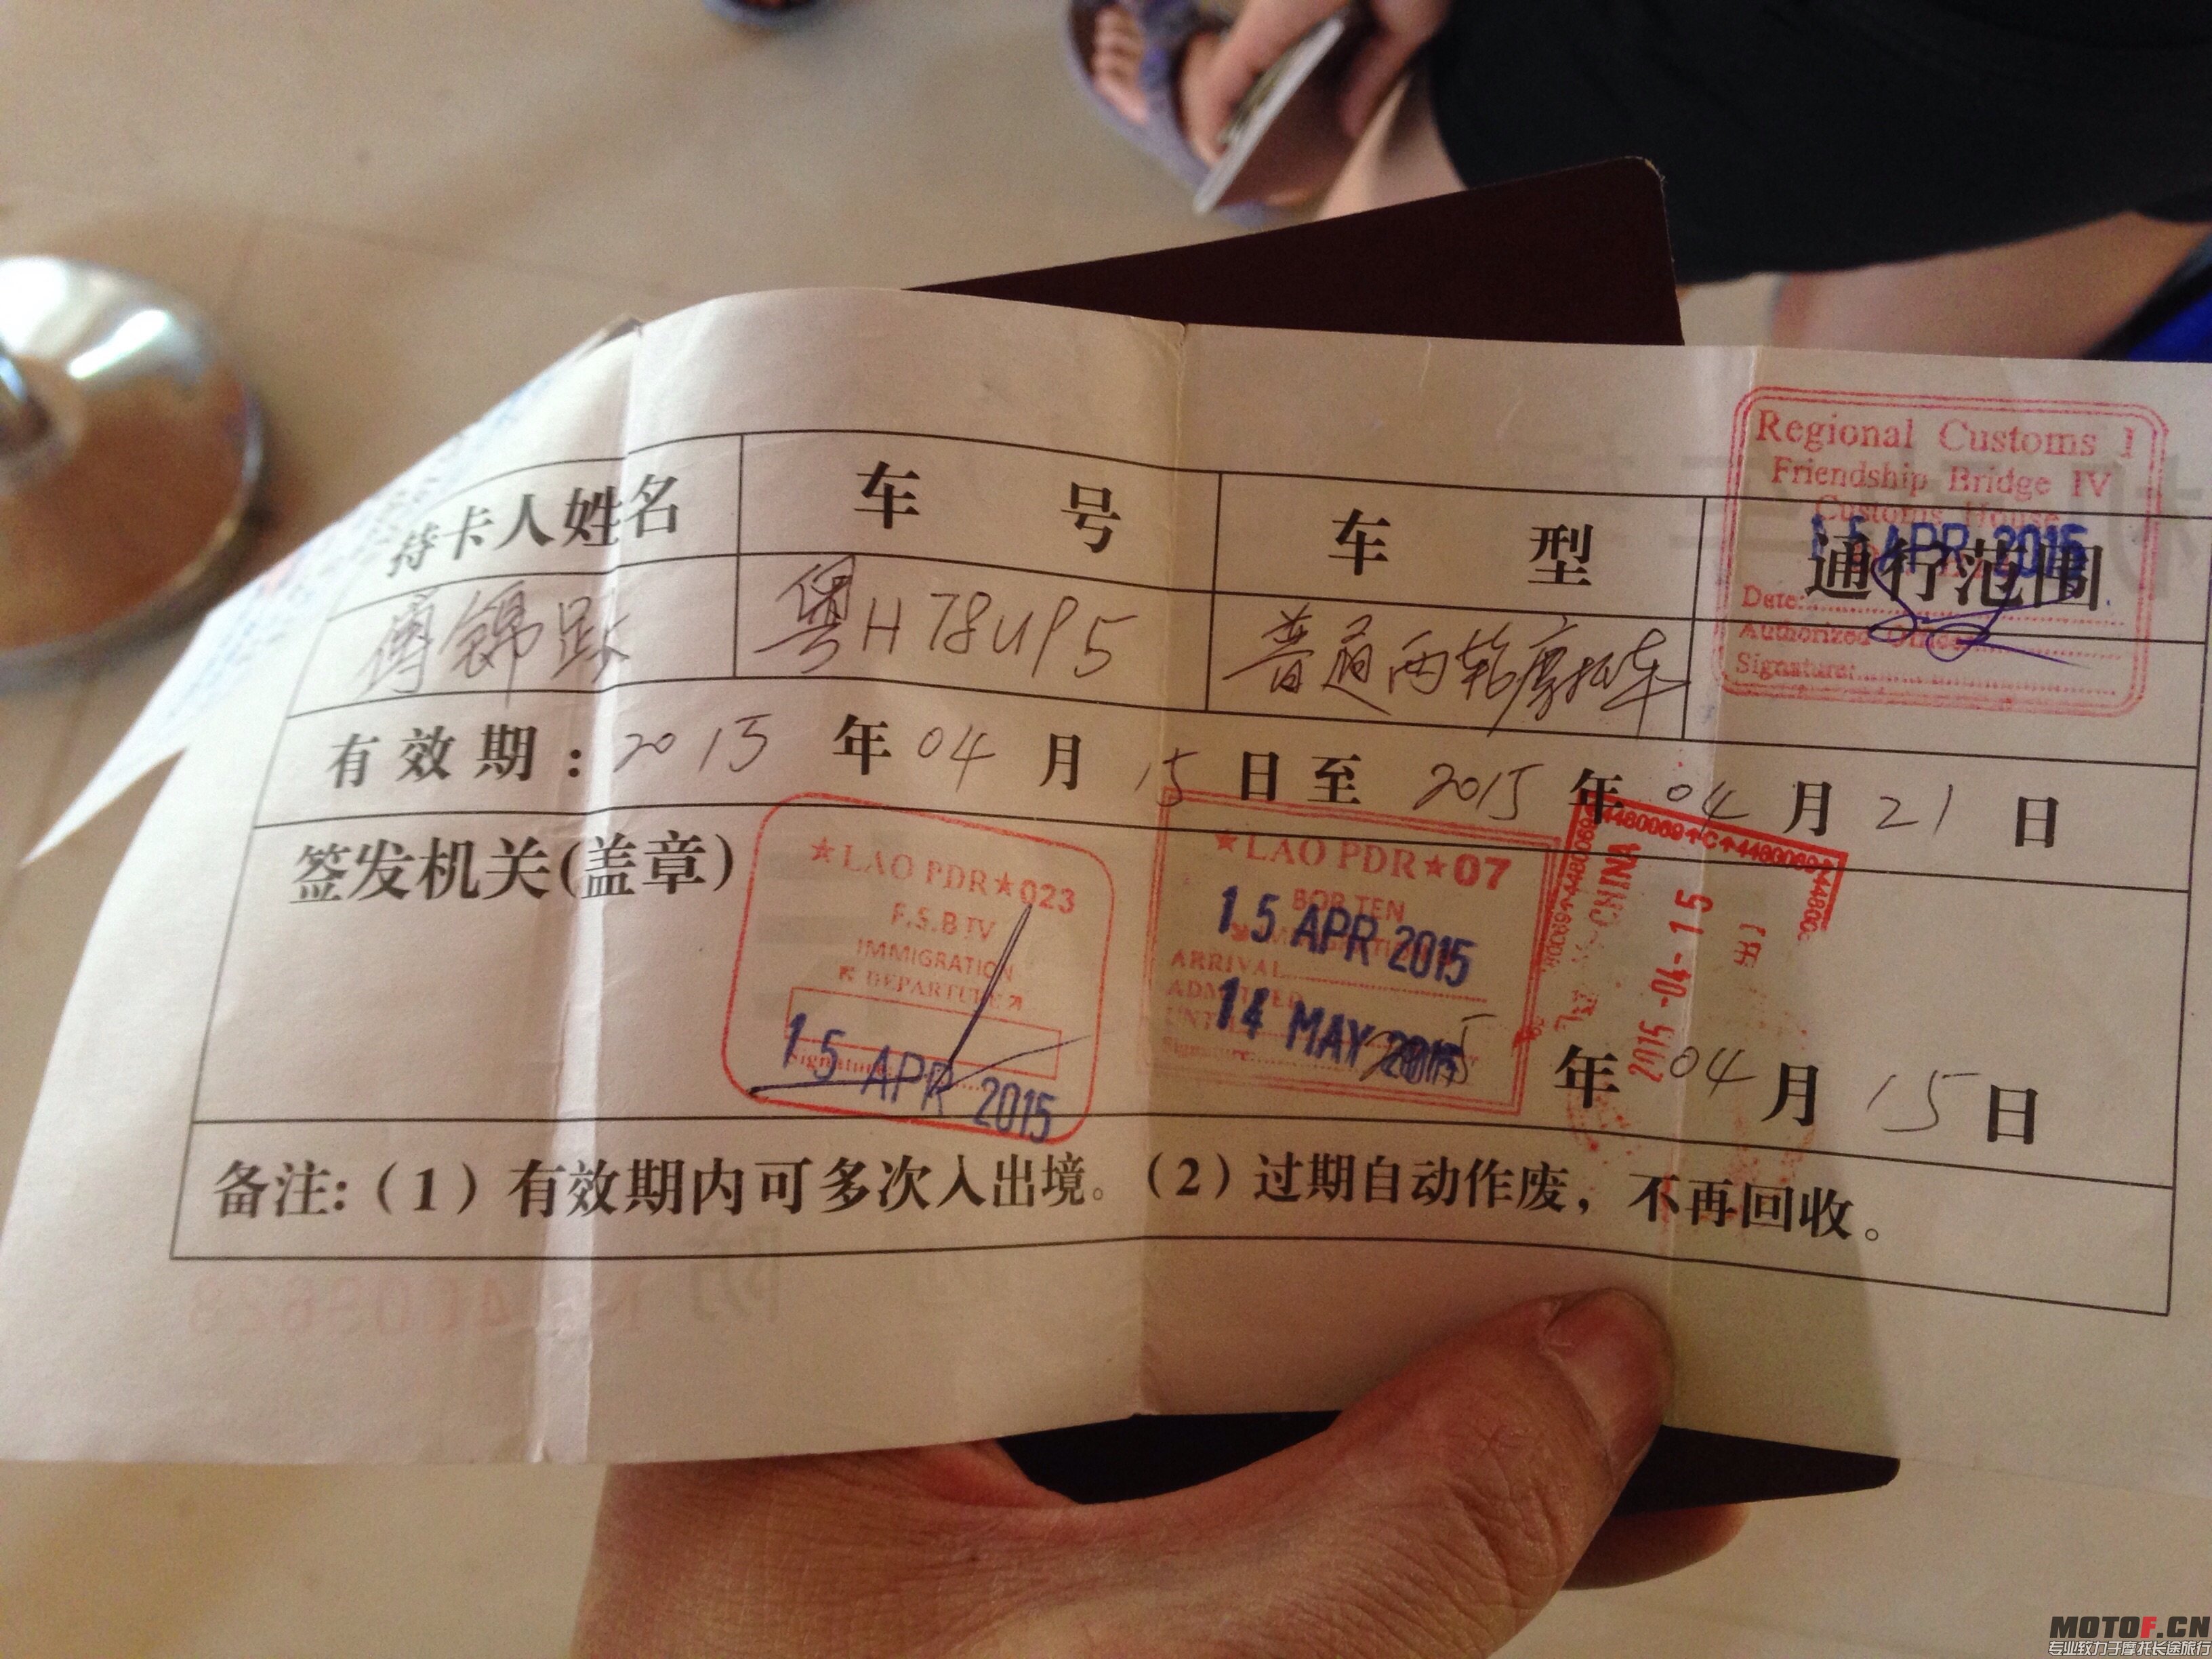 持卡人姓名 车 号 车 型 通行范围
傅锦跃 粤H78U95 普通两轮摩托车
Regional Customs I
Friendship Bridge IV
Customs House
15 APR 2015
Date:
Authorized Officer
Signature:
有效期：2015 年 04 月 15 日至 2015 年 04 月 21 日
签发机关(盖章)
★LAO PDR★023
F.S.B IV
IMMIGRATION
DEPARTURE
Signature:
15 APR 2015
★LAO PDR★07
BOR TEN
15 APR 2015
ARRIVAL
ADMITTED
14 MAY 2015
UNTIL
Signature:
CHINA
2015-04-15
2015 年 04 月 15 日
备注:(1)有效期内可多次入出境。(2)过期自动作废，不再回收。
MOTOF.CN
专业致力于摩托长途旅行